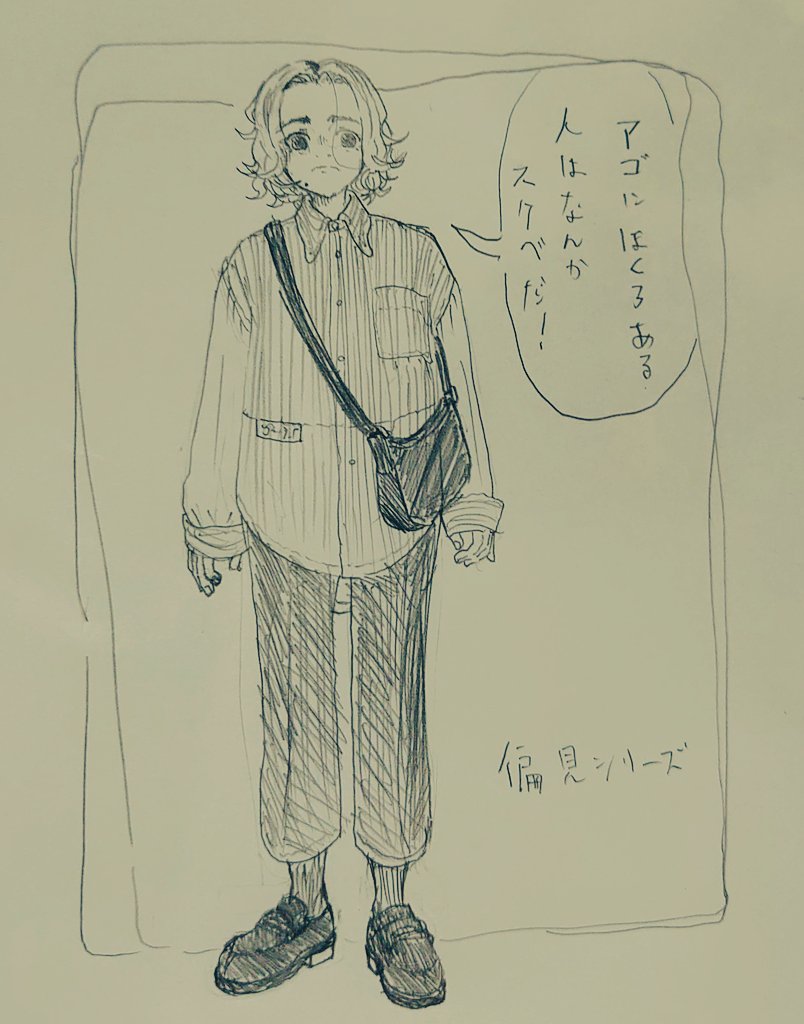 アゴにほくろある
人はなんか
スケベだ!
偏見シリーズ